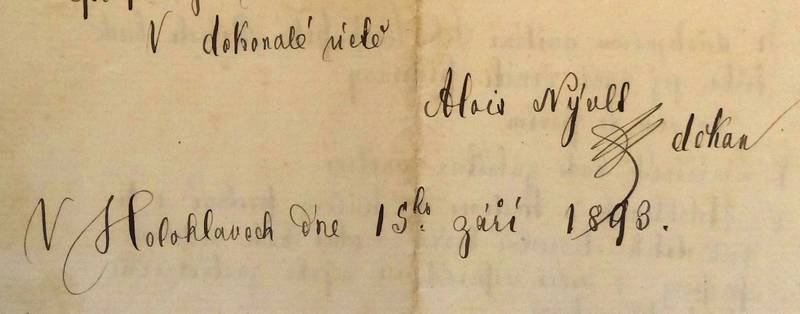 V dokonalé úctě
Alois Nývlt
děkan
V Holohlavech dne 15ho. září 1893.